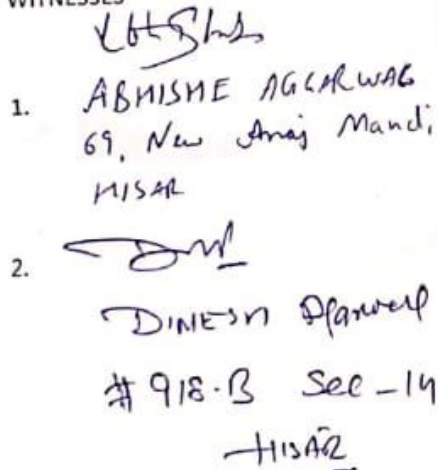 WITNESSES
1.
ABHISHE AGGARWAG
69, New Anaj Mandi,
HISAR
2.
DINESH Agarwal
# 918-B Sec-14
HISAR